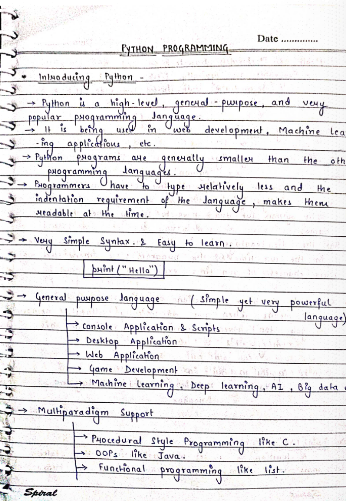 Date ..............
PYTHON PROGRAMMING
• Introducing Python -
→ Python is a high-level, general-purpose, and very
popular programming language.
→ It is being used in web development, Machine Lea
-ing applications, etc.
→ Python programs are generally smaller than the oth
programming languages.
→ Programmers have to type relatively less and the
indentation requirement of the language, makes them
readable at the time.
→ Very Simple Syntax & Easy to learn.
print("Hello")
→ General purpose language ( Simple yet very powerful
language)
→ Console Application & Scripts
→ Desktop Application
→ Web Application
→ Game Development
→ Machine Learning, Deep learning, AI, Big data
→ Multiparadigm Support
→ Procedural Style Programming like C.
→ OOPs like Java.
→ Functional programming like list.
Spiral